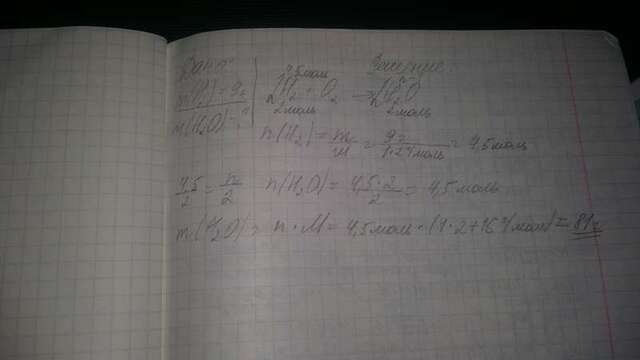 Дано:
m(H2) = 9г
m(H2O) = ?
Решение:
4,5моль n
2H2 + O2 → 2H2O
2моль 2моль
n(H2) = m/M = 9г/1·2г/моль = 4,5моль
4,5/2 = n/2 n(H2O) = 4,5·2/2 = 4,5моль
m(H2O) = n·M = 4,5моль·(1·2+16г/моль) = 81г